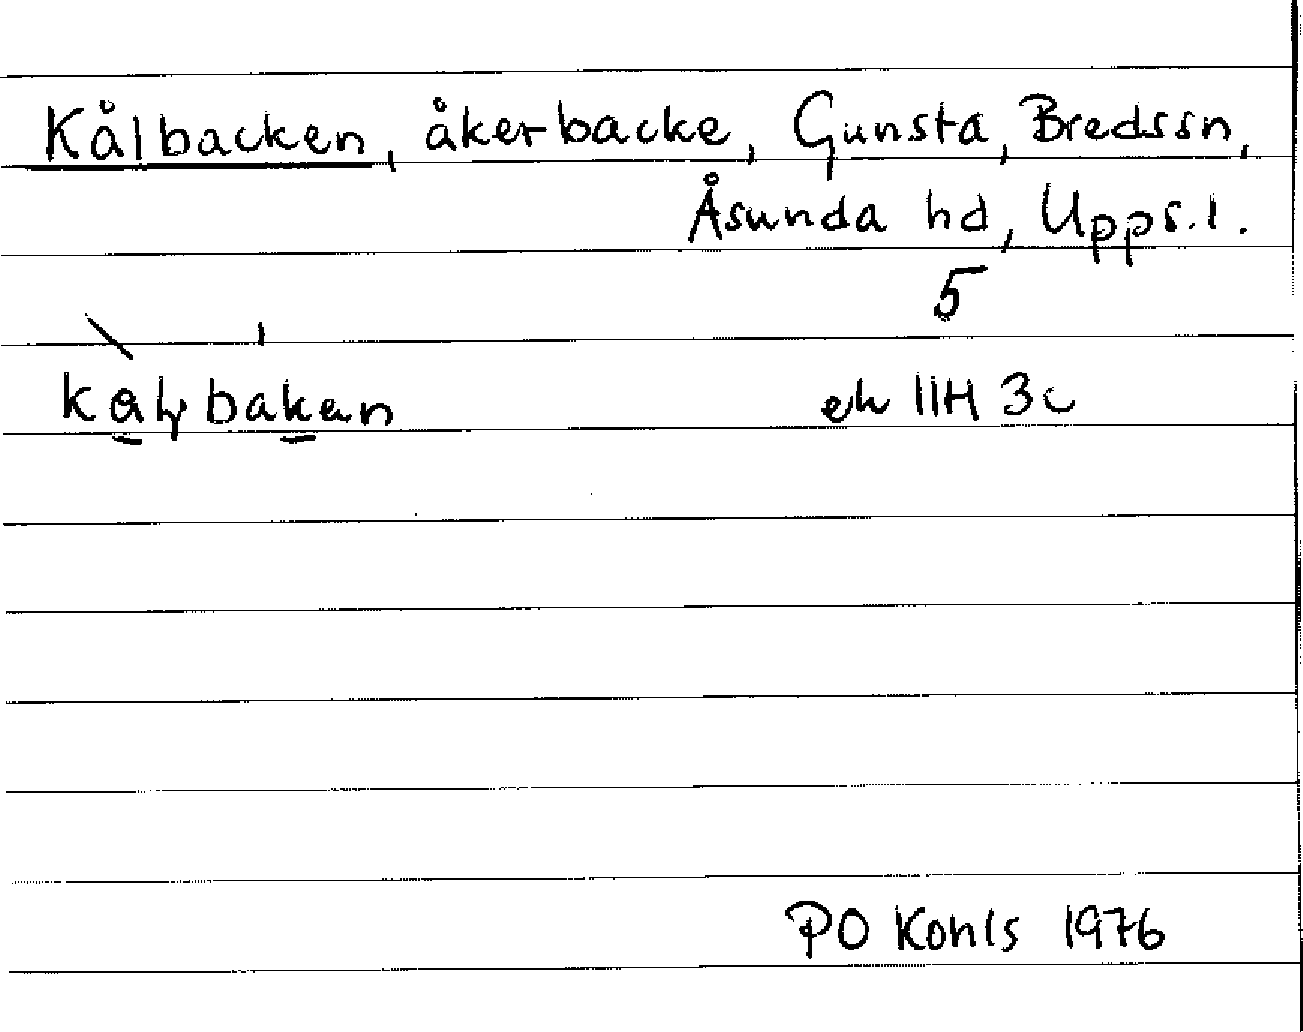 Kålbacken, åkerbacke, Gunsta, Bredssn,
Åsunda hd, Upps.l.
5
kalybakan
ek 11H 3c
PO Kohls 1976